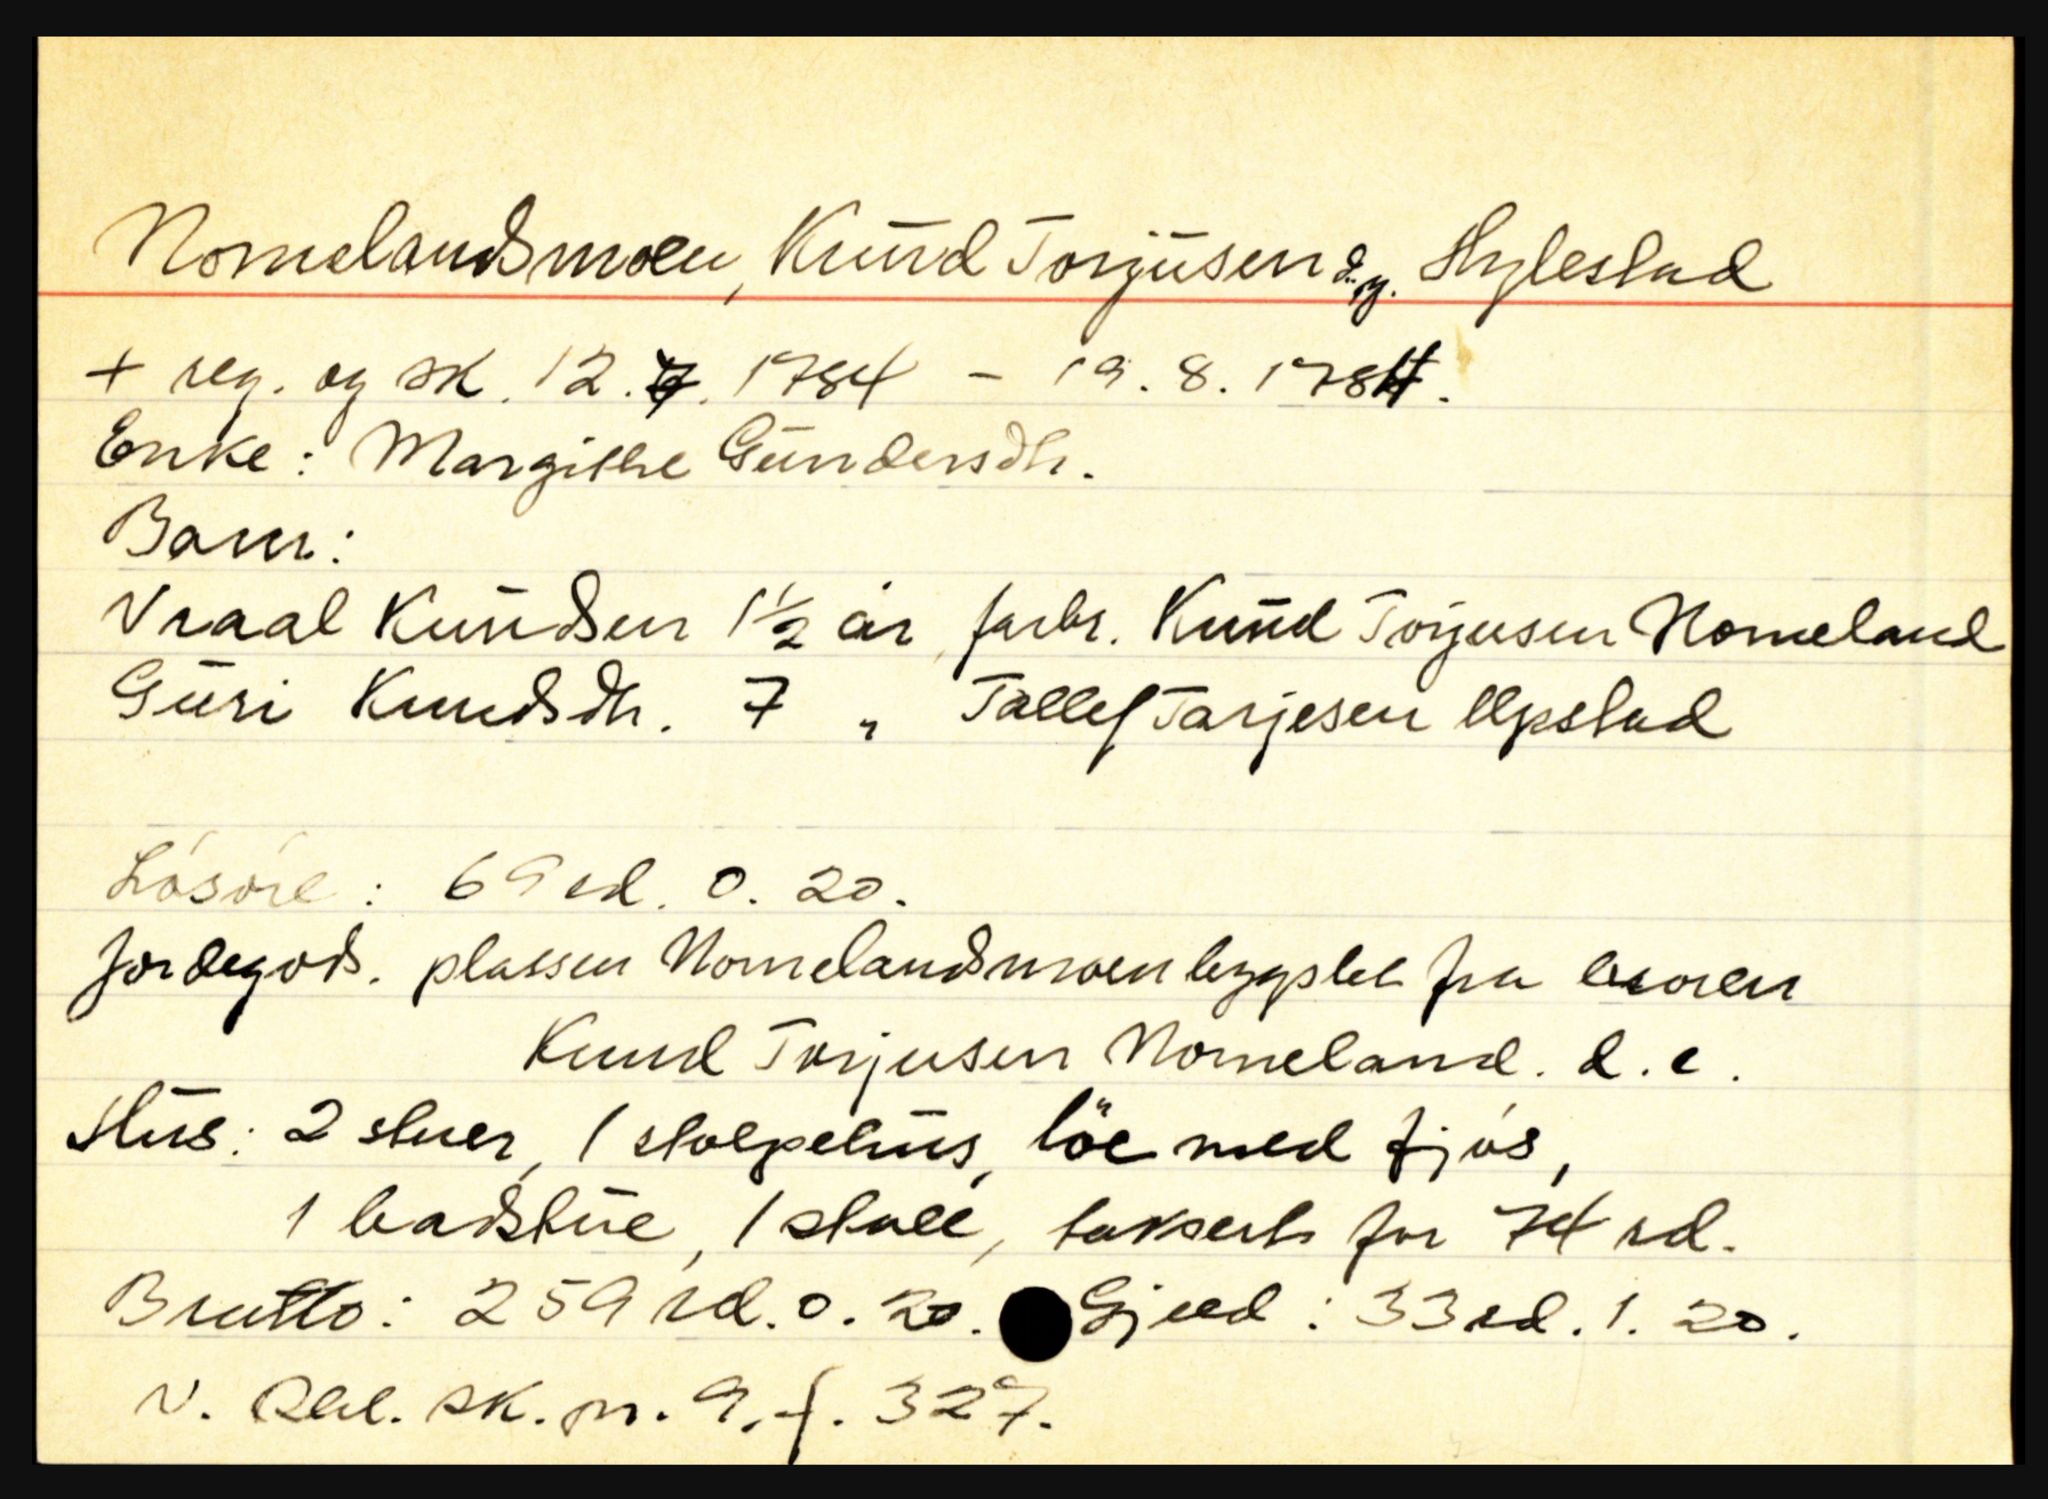 Nomelandsmoen, Knud Torjusen d.y. Hylestad
+ reg. og sk. 12.7. 1784 - 19. 8. 1784.
Enke: Margithe Gundersdtr.
Barn:
Vraal Knudsen 1½ år, farbr. Knud Torjusen Nomeland
Guri Knudsdtr. 7 " Tallef Tarjesen Upstad
Lösöre: 69 rd. 0. 20.
Jordegods. plassen Nomelandsmoen bygslet fra broren
Knud Torjusen Nomeland. d.e.
Hus: 2 stuer, 1 stolpehus, löe med fjös,
1 badstue, 1 stall, taksert for 74 rd.
Brutto: 259 rd. 0. 20. Gjeld: 33 rd. 1. 20.
V. Rbl. sk. pr. 9. f. 327.